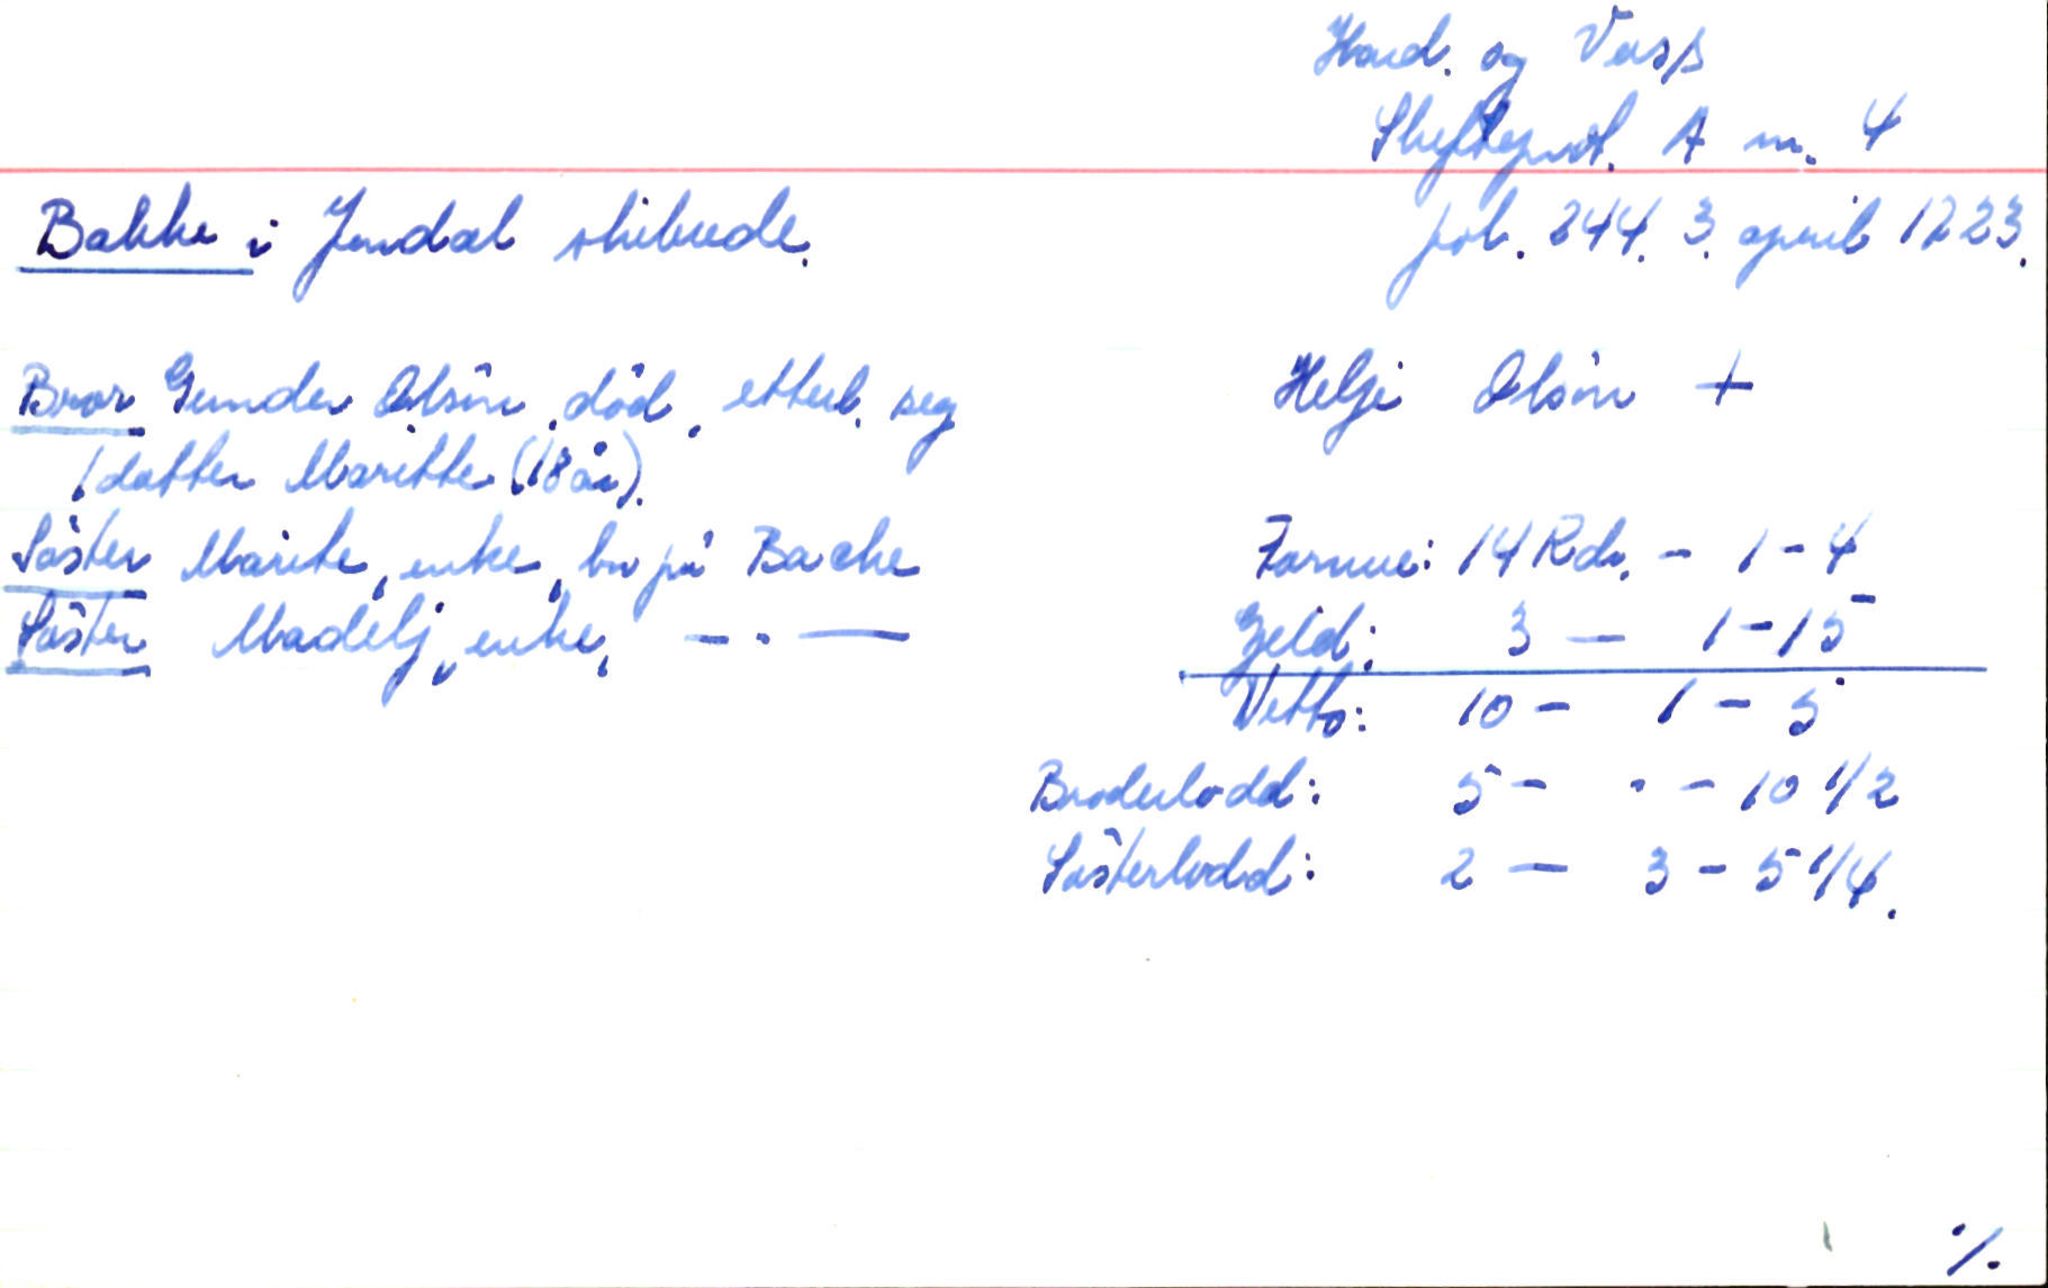 Hard. og Voss
Skifteprot. A nr. 4
Bakke i Jondal skibrede. fol. 244. 3. april 1723.
Bror Gunder Olsön, död, etterl. seg Helje Olsön +
1 datter Maritte (18 år).
Söster Marite, enke, bur på Bache Formue: 14 Rdr. - 1 - 4
Söster Madelj, enke, - " - Gjeld: 3 - 1 - 15
Netto: 10 - 1 - 5
Broderlodd: 5 - . - 10 1/2
Sösterlodd: 2 - 3 - 5 1/4.
./.